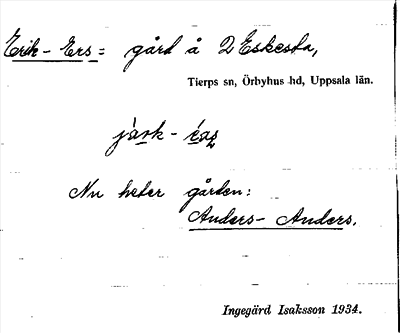 Erik-Ers = gård å 2 Eskesta,
Tierps sn, Örbyhus hd, Uppsala län.
Nu heter gården:
Anders-Anders.
Ingegärd Isaksson 1934.